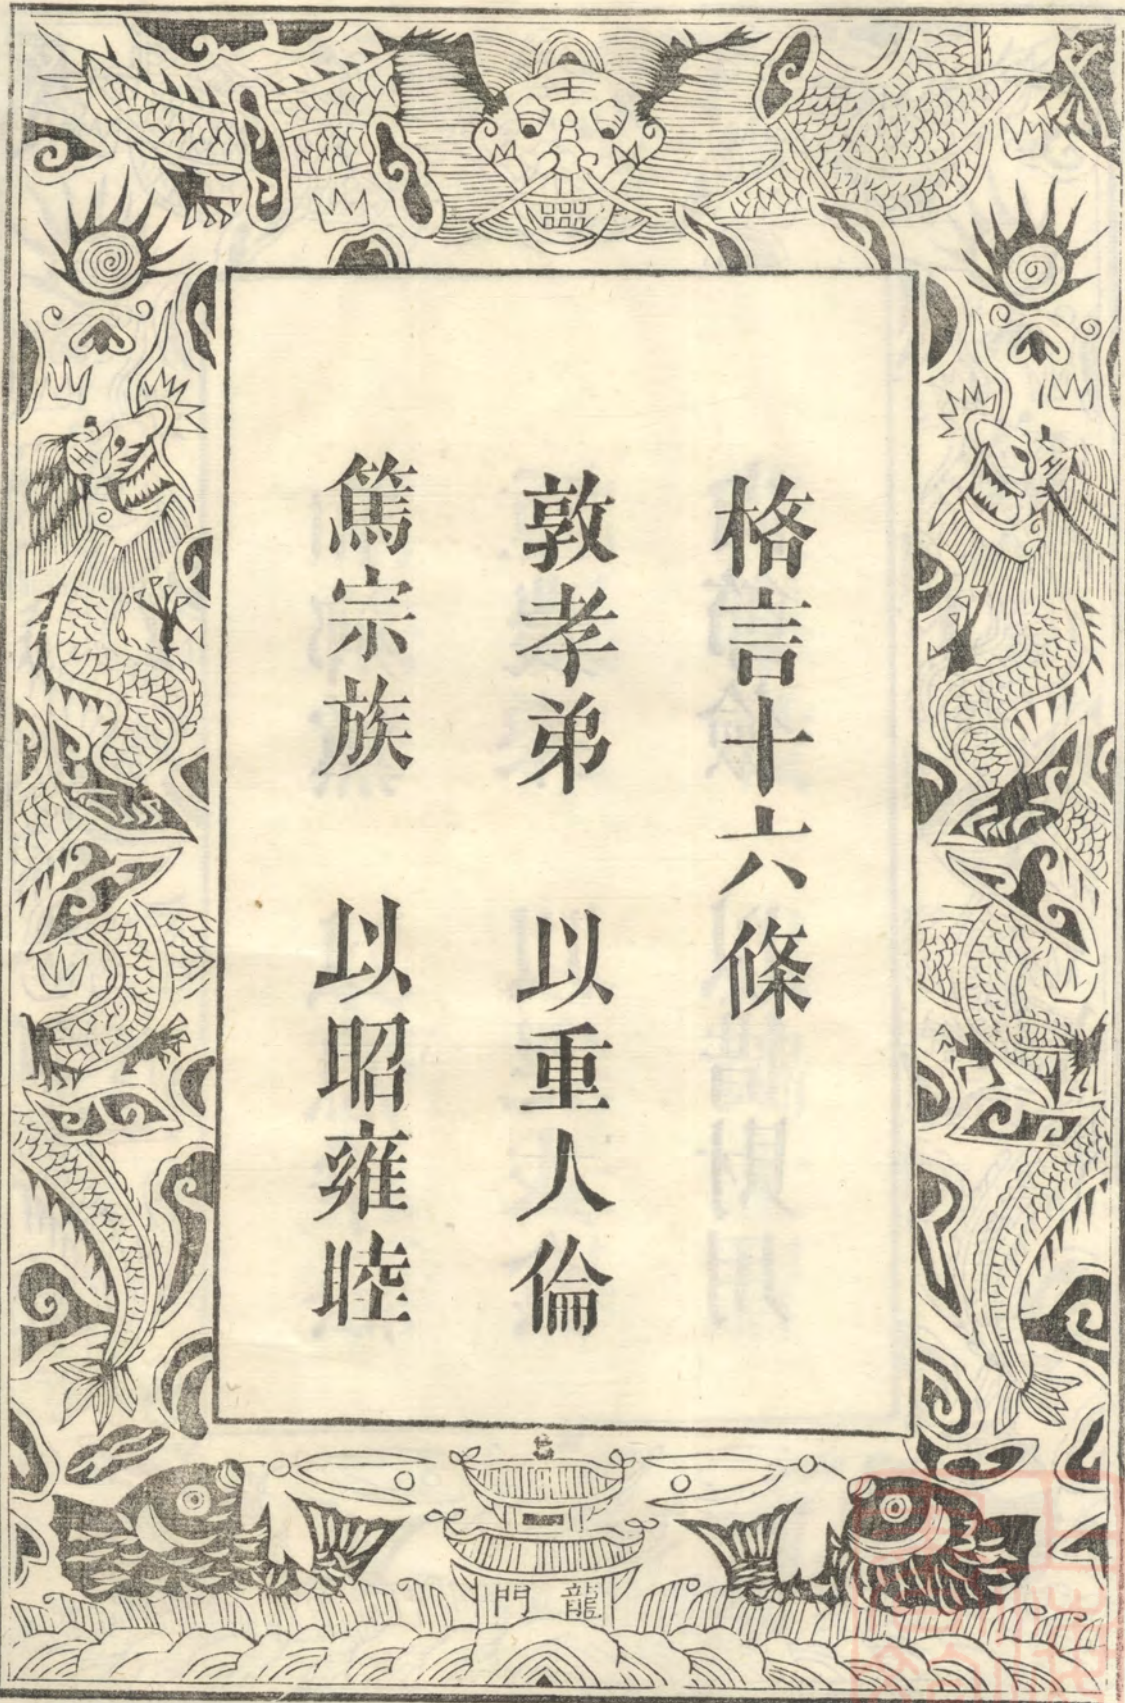 格言十六條
敦孝弟 以重人倫
篤宗族 以昭雍睦
王
龍門